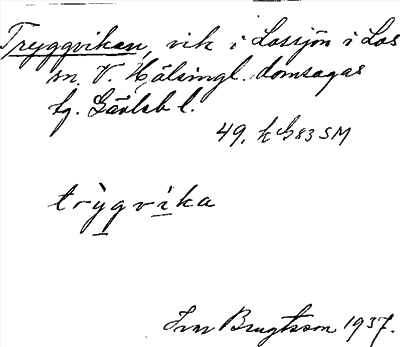 Tryggvikan, vik i Lossjön i Los
sn. V. Hälsingl. domsagas
tg. Gävleb l.
49. k G83 SM
trỳgvika
Ivar Bengtsson 1937.